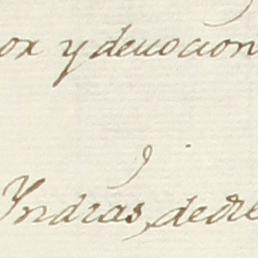 or y devocion
Yndras, de